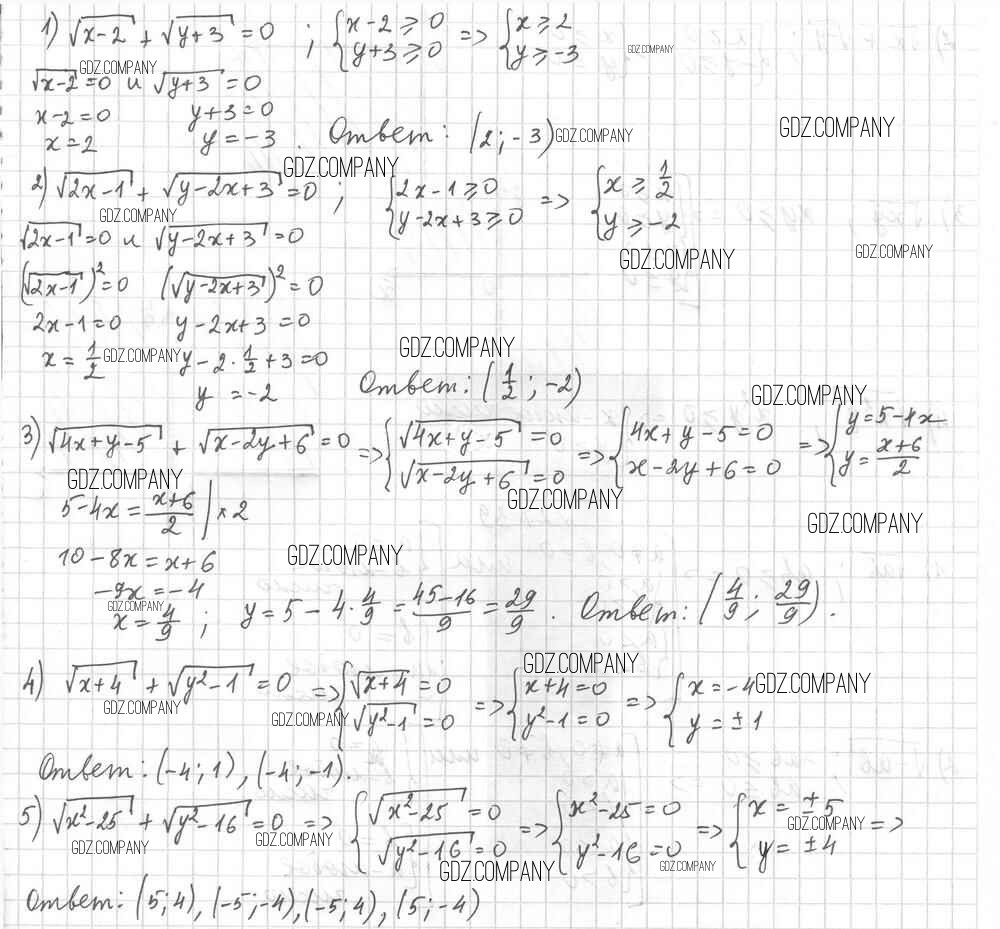 1) √(x-2) + √(y+3) = 0 ; { x-2 ⩾ 0 y+3 ⩾ 0 => { x ⩾ 2 y ⩾ -3 GDZ.COMPANY
GDZ.COMPANY
√(x-2) = 0 и √(y+3) = 0
x-2=0 y+3=0 GDZ.COMPANY
x=2 y=-3. Ответ: (2;-3) GDZ.COMPANY
GDZ.COMPANY
2) √(2x-1) + √(y-2x+3) = 0 ; { 2x-1 ⩾ 0 y-2x+3 ⩾ 0 => { x ⩾ 1/2 y ⩾ -2
GDZ.COMPANY
√(2x-1) = 0 и √(y-2x+3) = 0 GDZ.COMPANY GDZ.COMPANY
(√(2x-1))² = 0 (√(y-2x+3))² = 0
2x-1=0 y-2x+3=0
GDZ.COMPANY
x = 1/2 GDZ.COMPANY y-2·1/2+3=0
y = -2 Ответ: (1/2; -2) GDZ.COMPANY
3) √(4x+y-5) + √(x-2y+6) = 0 => { √(4x+y-5) = 0 √(x-2y+6) = 0 => { 4x+y-5=0 x-2y+6=0 => { y=5-4x y=(x+6)/2
GDZ.COMPANY GDZ.COMPANY
5-4x = (x+6)/2 | × 2 GDZ.COMPANY
10-8x = x+6 GDZ.COMPANY
-9x = -4
GDZ.COMPANY
x = 4/9 ; y = 5-4·4/9 = (45-16)/9 = 29/9 . Ответ: (4/9; 29/9).
GDZ.COMPANY
4) √(x+4) + √(y²-1) = 0 => { √(x+4) = 0 √(y²-1) = 0 => { x+4=0 y²-1=0 => { x=-4 y=±1 GDZ.COMPANY
GDZ.COMPANY GDZ.COMPANY
Ответ: (-4;1), (-4;-1).
5) √(x²-25) + √(y²-16) = 0 => { √(x²-25) = 0 √(y²-16) = 0 => { x²-25=0 y²-16=0 => { x=±5 y=±4 =>
GDZ.COMPANY GDZ.COMPANY GDZ.COMPANY GDZ.COMPANY GDZ.COMPANY
Ответ: (5;4), (-5;-4), (-5;4), (5;-4)